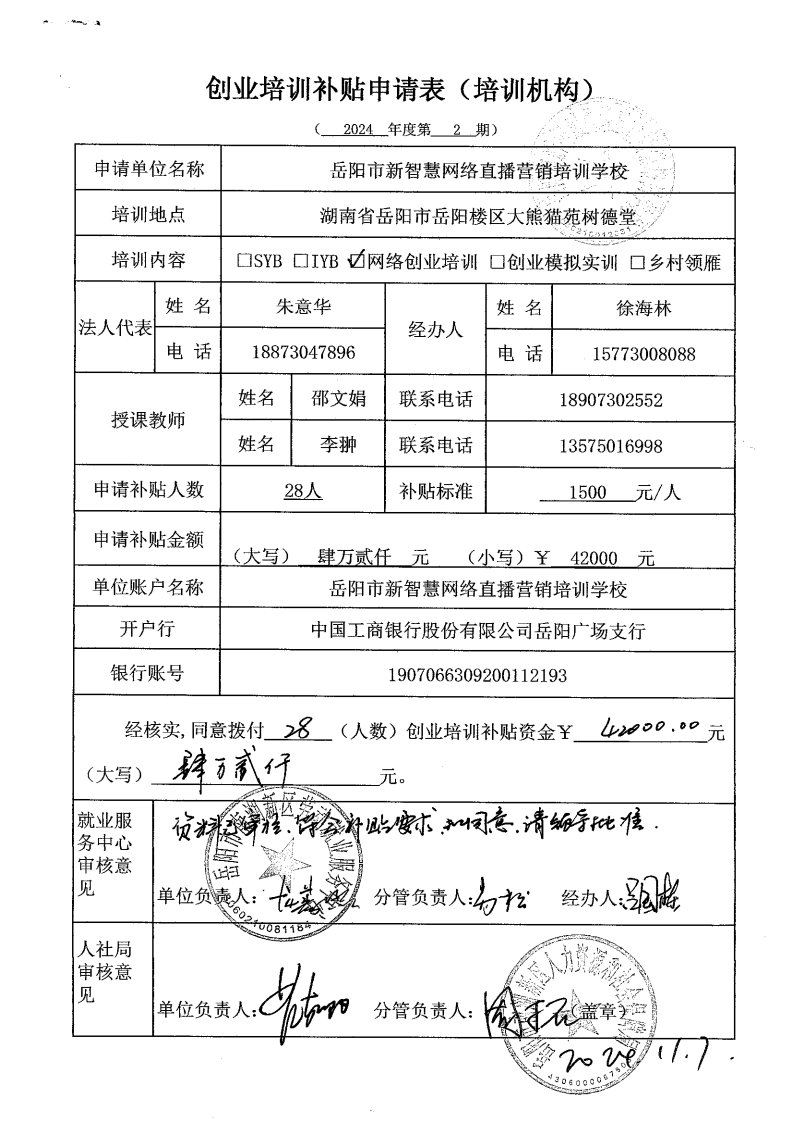 创业培训补贴申请表（培训机构）
（ 2024 年度第 2 期）
申请单位名称 岳阳市新智慧网络直播营销培训学校
培训地点 湖南省岳阳市岳阳楼区大熊猫苑树德堂
培训内容 □SYB □IYB ☑网络创业培训 □创业模拟实训 □乡村领雁
法人代表 姓 名 朱意华 经办人 姓 名 徐海林
电 话 18873047896 电 话 15773008088
授课教师 姓名 邵文娟 联系电话 18907302552
姓名 李翀 联系电话 13575016998
申请补贴人数 28人 补贴标准 1500 元/人
申请补贴金额 （大写） 肆万贰仟 元 （小写）￥ 42000 元
单位账户名称 岳阳市新智慧网络直播营销培训学校
开户行 中国工商银行股份有限公司岳阳广场支行
银行账号 1907066309200112193
经核实,同意拨付 28 （人数）创业培训补贴资金￥ 42000.00 元
（大写） 肆万贰仟 元。
就业服务中心审核意见 资料已审核，符合补贴要求，拟同意，请领导批准．
单位负责人： 分管负责人： 经办人：
人社局审核意见
单位负责人： 分管负责人： （盖章）
2024.11.7.